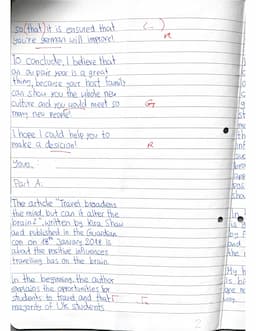 so (that) it is ensured that (...)
you're german will improve! R
To conclude, I believe that
an au pair year is a great
thing, because your host family
can show you the whole new
culture and you would meet so G
many new people!
I hope I could help you to
make a desicion! R
Yours,
Part A:
The article "Travel broadens
the mind, but can it alter the
brain?", written by Kira Shaw
and published in the Guardian
on 18th January 2018 is
about the positive influences
travelling has on the brain.
In the beginning, the author
explains the opportunities for
students to travel and that
majority of UK students
2